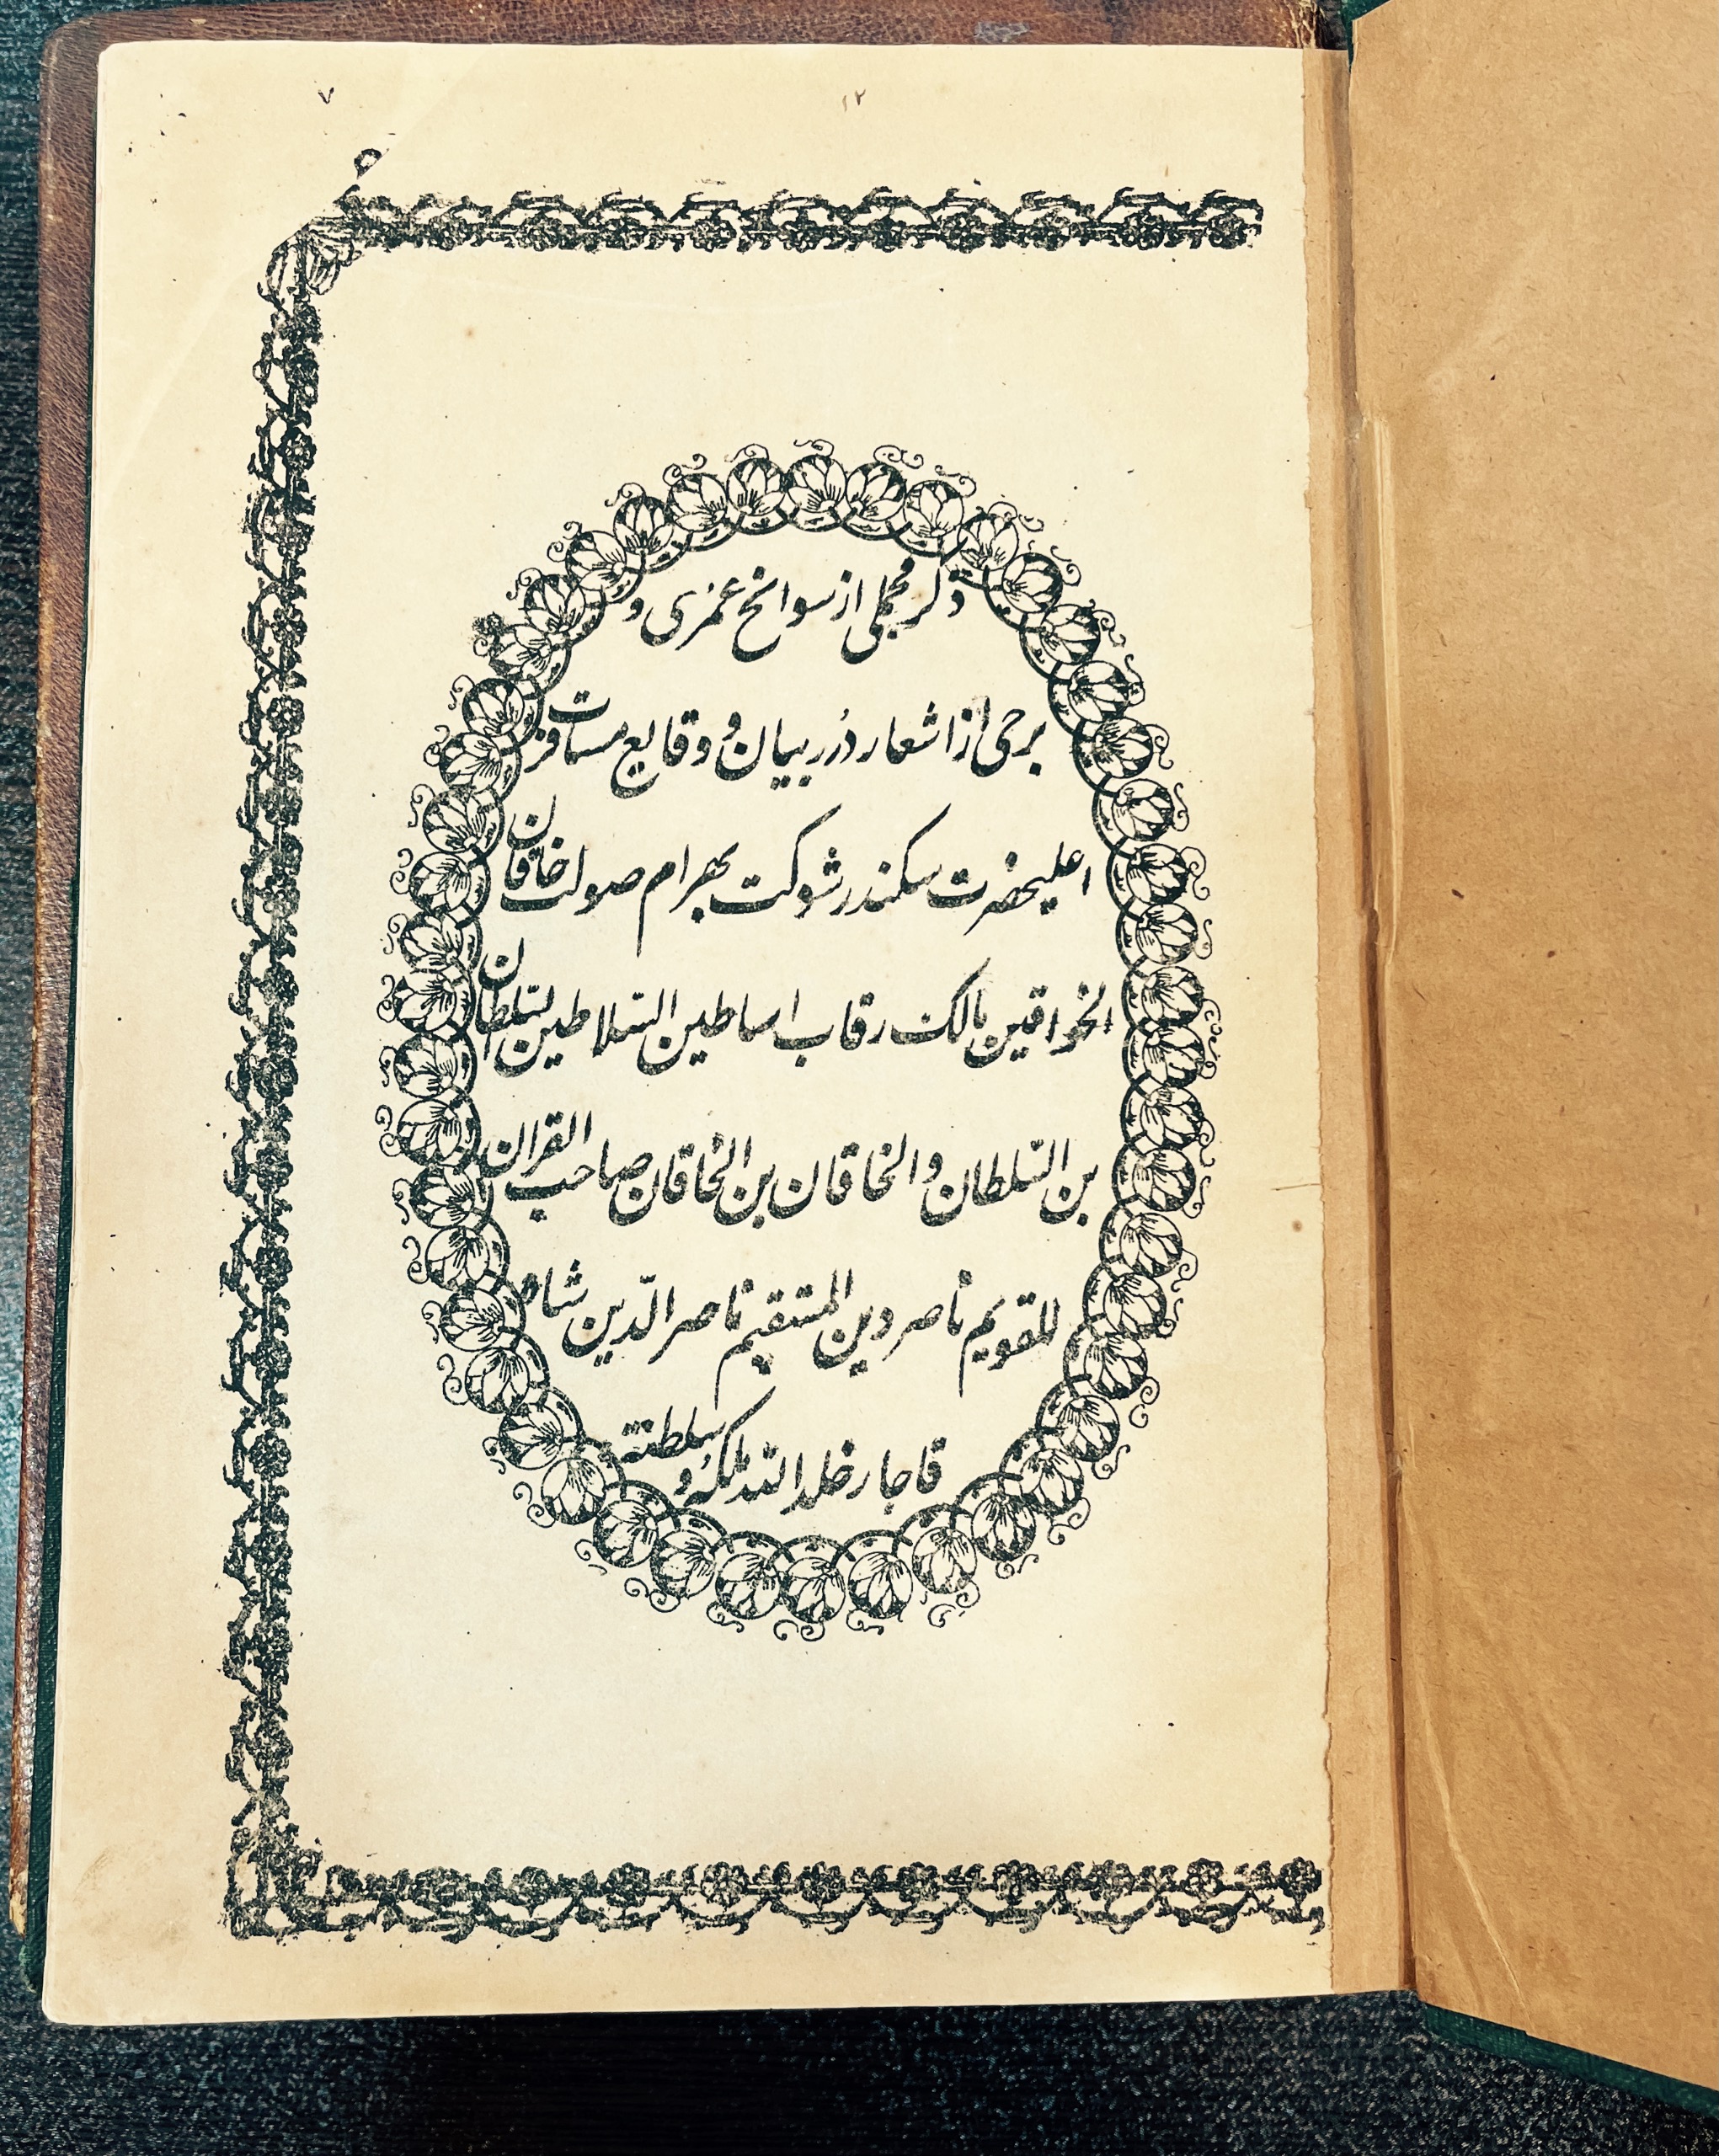 ۷
۱۲
ذکر مجملی از سوانح عمری و
برخی از اشعار دُرر بیان و وقایع مسافرت
اعلیحضرت سکندر شوکت بهرام صولت خاقان
الخواقین مالک رقاب اساطین السّلاطین السّلطان
بن السّلطان و الخاقان بن الخاقان صاحب القران
للقویم ناصر دین المستقیم ناصر الدّین شاه
قاجار خلد الله ملکه و سلطنته